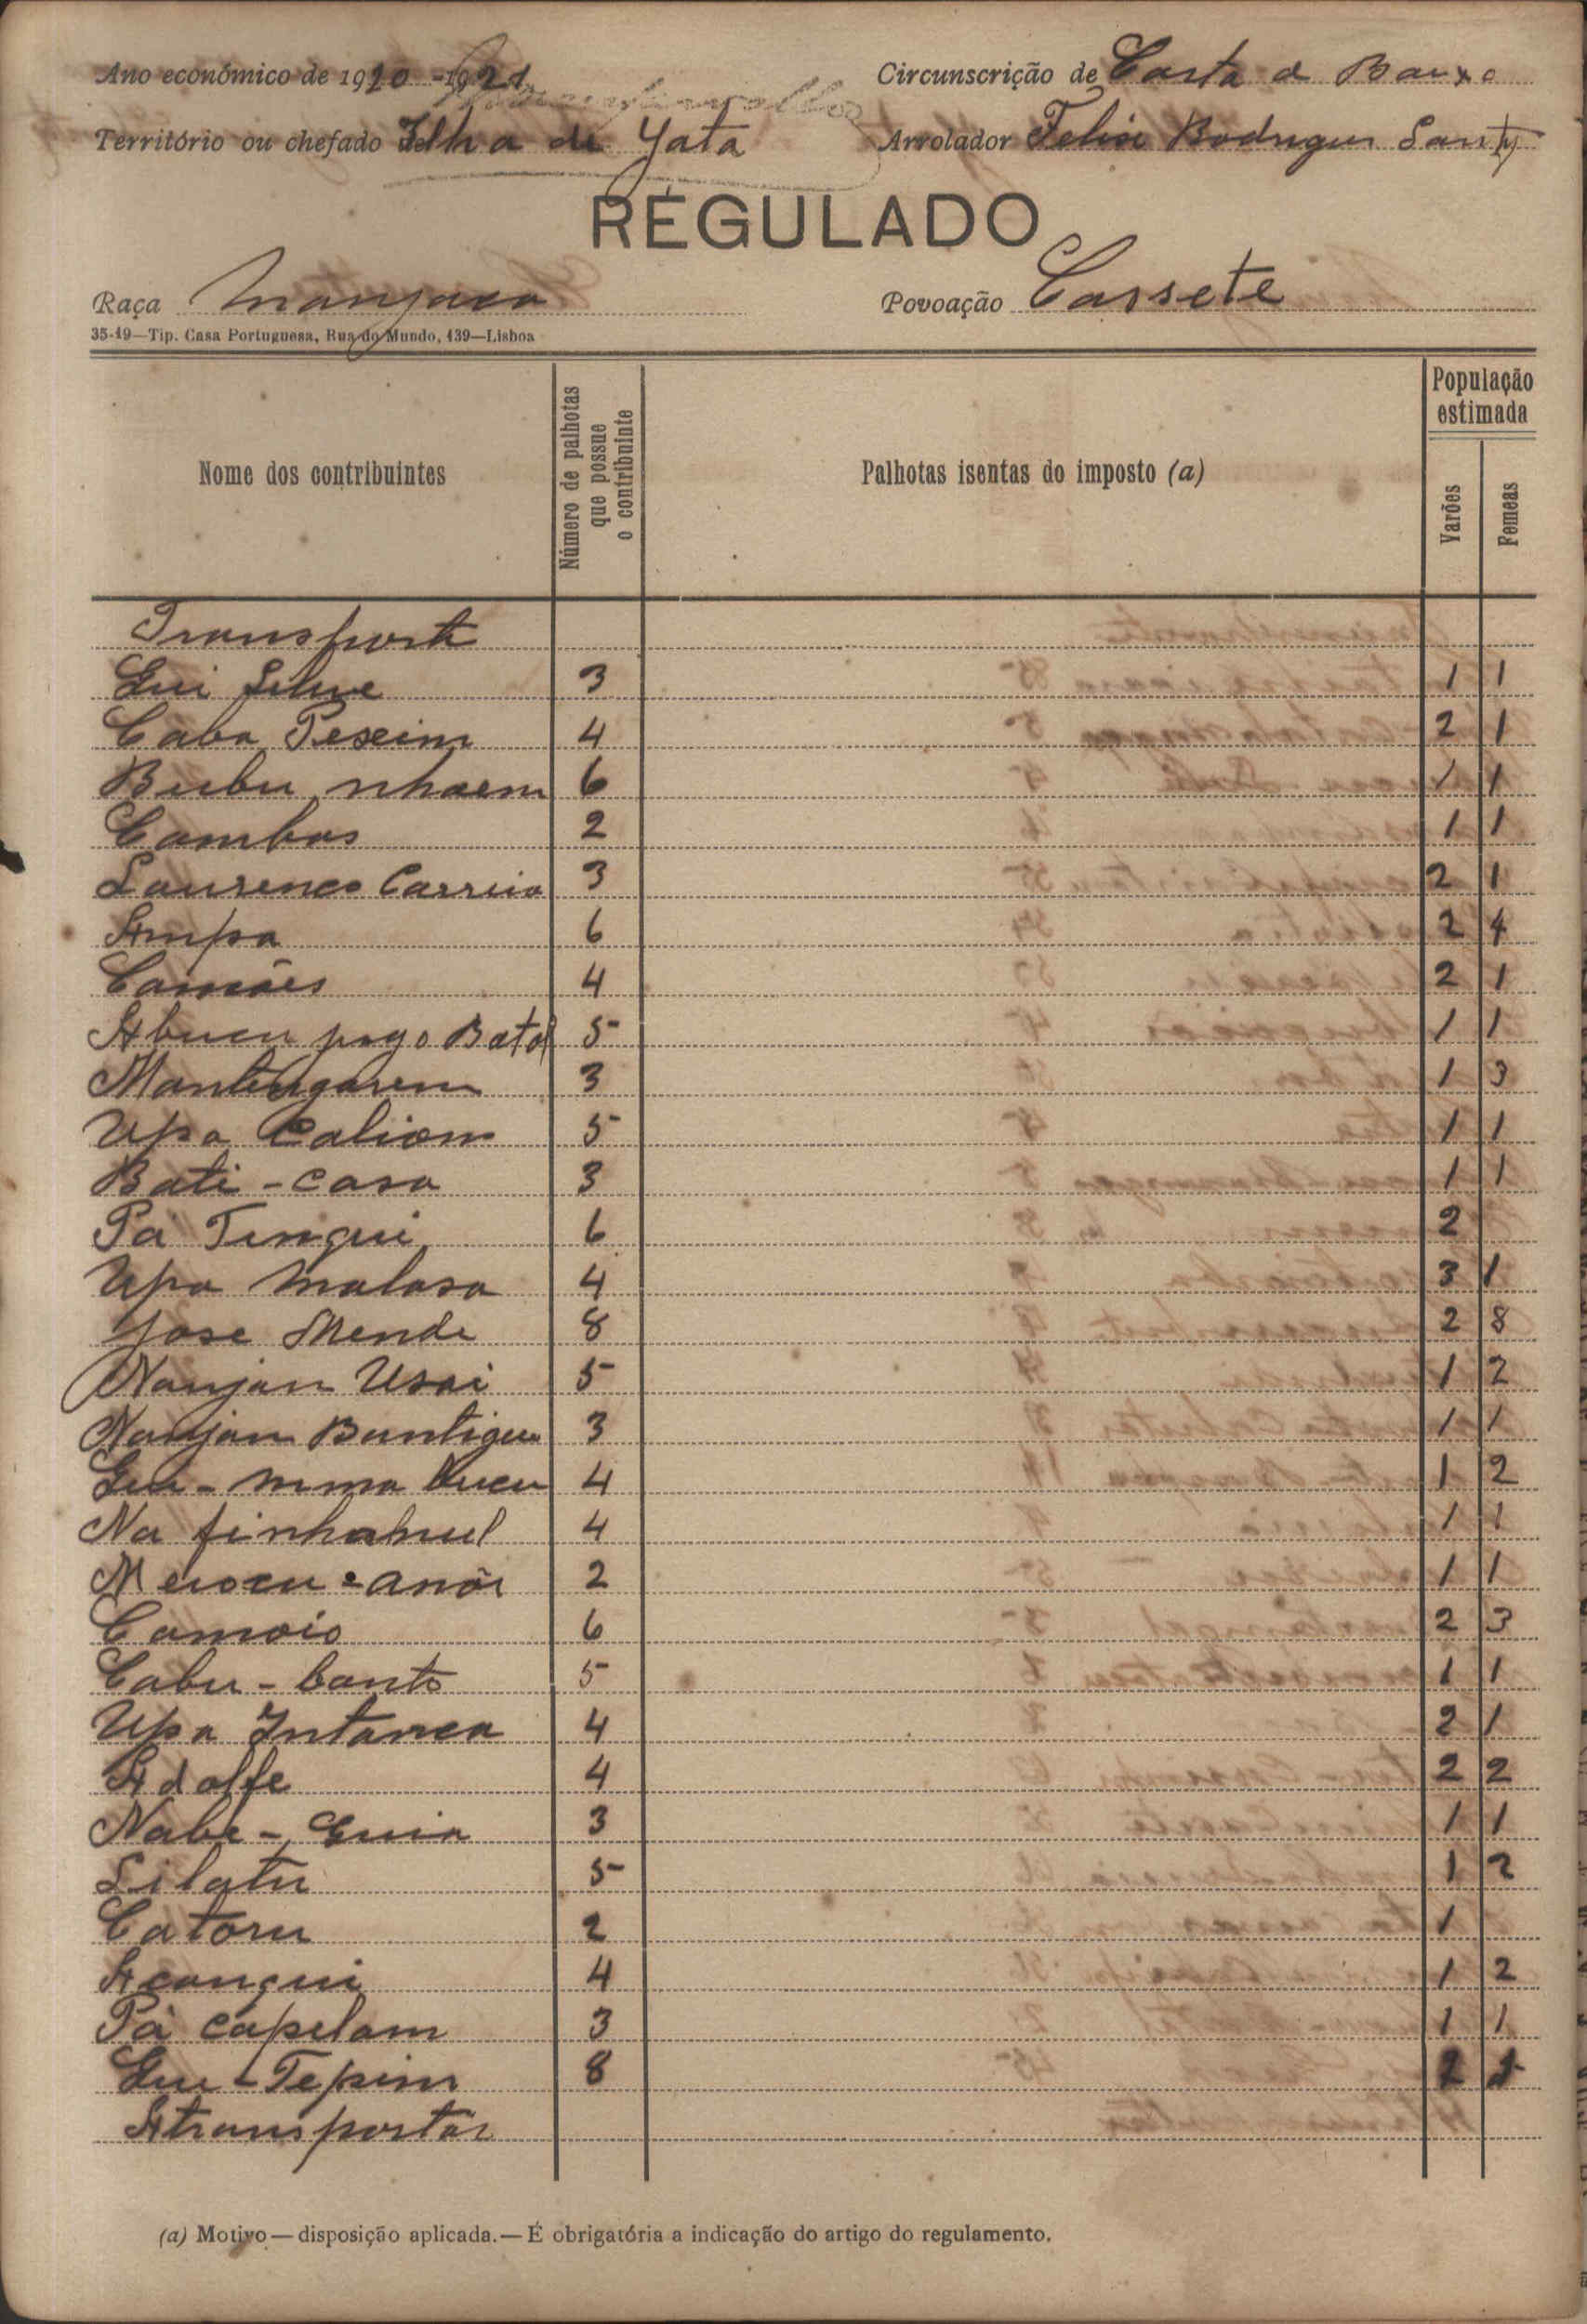 Ano económico de 1920-1921 Circunscrição de Costa de Baixo
Território ou chefado Ilha de Yata Arrolador Felix Rodrigues Santy
REGULADO
Raça Manjaca Povoação Cassete
35-19—Tip. Casa Portuguesa, Rua do Mundo, 139—Lisboa
Nome dos contribuintes Número de palhotas que possue o contribuinte Palhotas isentas do imposto (a) População estimada Varões Femeas
Transporte
Gui 3 1 1
Caba Pexeim 4 2 1
Bubu nhaem 6 1 1
Cambas 2 1 1
Lourenco Carreia 3 2 1
Ampa 6 2 4
Camões 4 2 1
Abucu pogo Batol 5 1 1
Mantengarem 3 1 3
Upa Caliom 5 1 1
Bati-casa 3 1 1
Pa Tingui 6 2
Upa Malasa 4 3 1
Jose Mende 8 2 8
Nanjan Usai 5 1 2
Nanjan Buntigue 3 1 1
Gu-mma Ducu 4 1 2
Na finhahul 4 1 1
2 1 1
Camoio 6 2 3
Cabu-banto 5 1 1
Upa Intanca 4 2 1
Adolfe 4 2 2
Nabe- Guia 3 1 1
Lilatu 5 1 2
Catoru 2 1
Acangui 4 1 2
Pà capelam 3 1 1
Gu-Tepim 8 2 1
A transportar
(a) Motivo—disposição aplicada.—É obrigatória a indicação do artigo do regulamento.